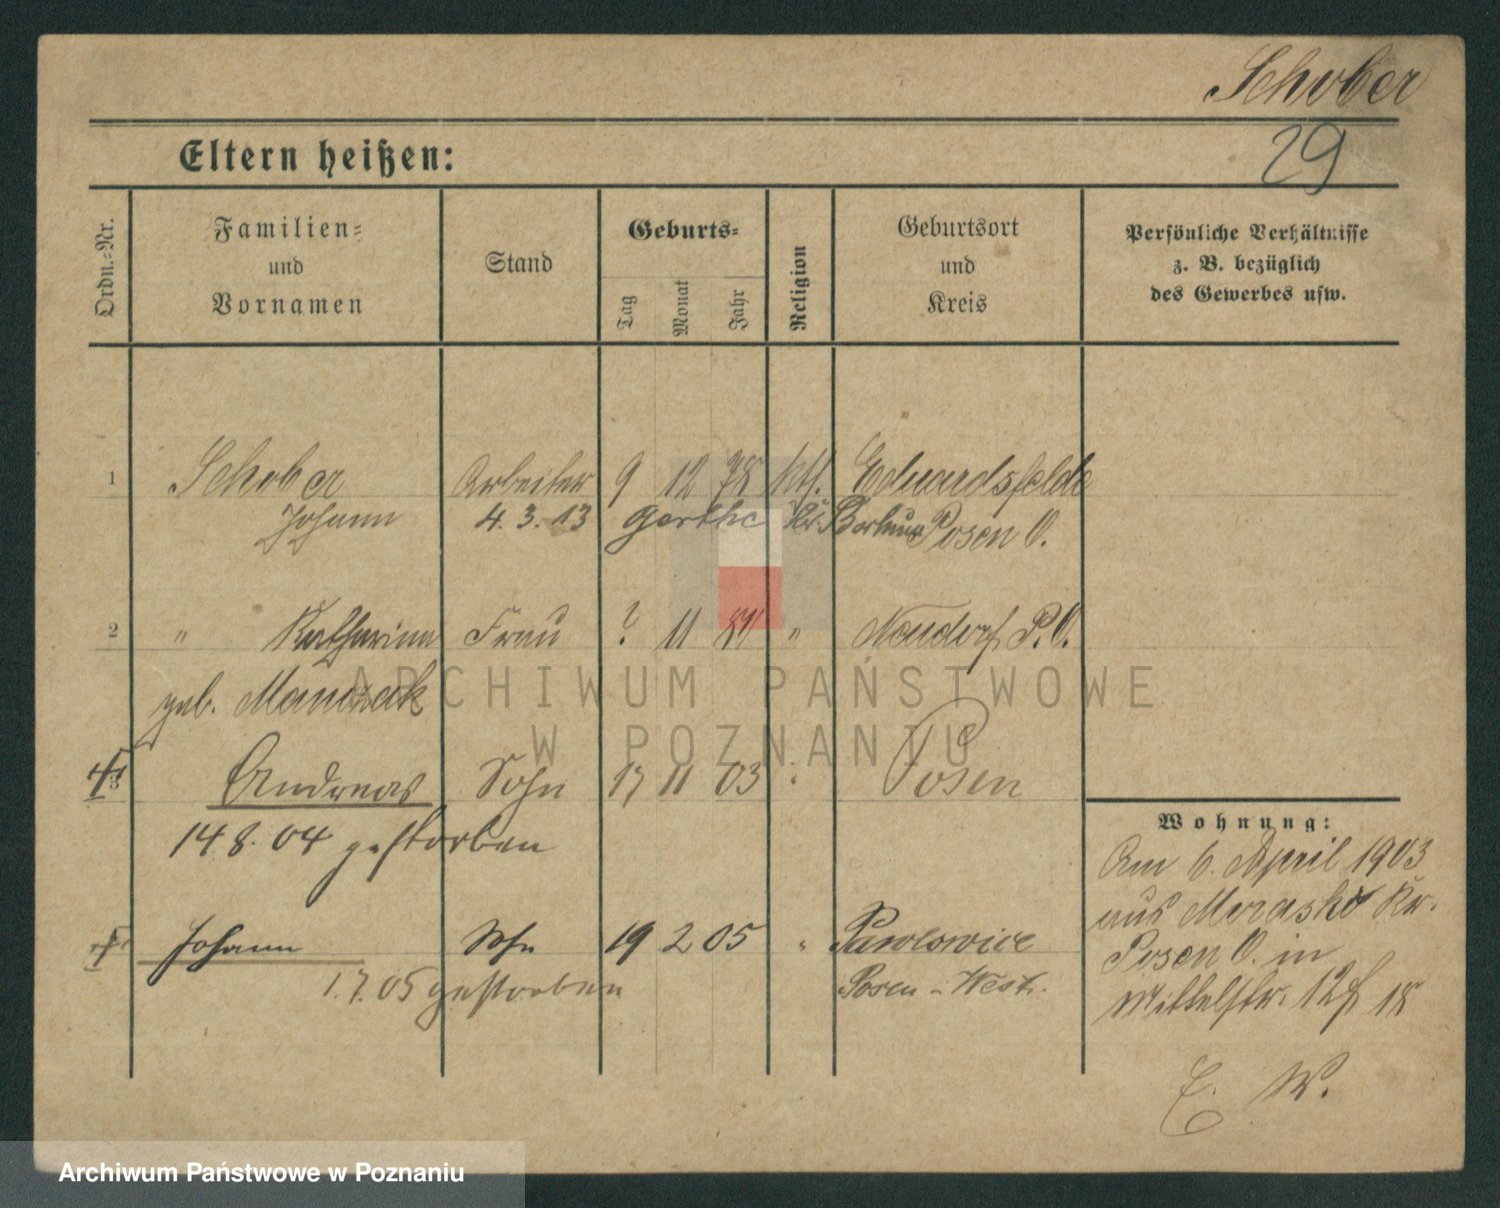 Schober
29
Eltern heißen:
Ordn.-Nr.
Familien-
und
Vornamen
Stand
Geburts-
Tag
Monat
Jahr
Religion
Geburtsort
und
Kreis
Persönliche Verhältnisse
z. B. bezüglich
des Gewerbes usw.
1 Schober Arbeiter 9 12 78 kth. Eduardsfelde
Johann 4. 3. 13 Gerthe Kr. Bochum Posen O.
2 " Katharina Frau ? 11 " Neudorf P. O.
geb. Manczak
3 Andreas Sohn 17 11 03 " Posen
14 8. 04 gestorben
Johann Sohn 19 2 05 " Pawlowice
1. 7. 05 gestorben Posen - West.
Wohnung:
Am 6. April 1903
aus Morasko Kr.
Posen O. in
Mittelstr. 18
E. W.
ARCHIWUM PAŃSTWOWE
W POZNANIU
Archiwum Państwowe w Poznaniu